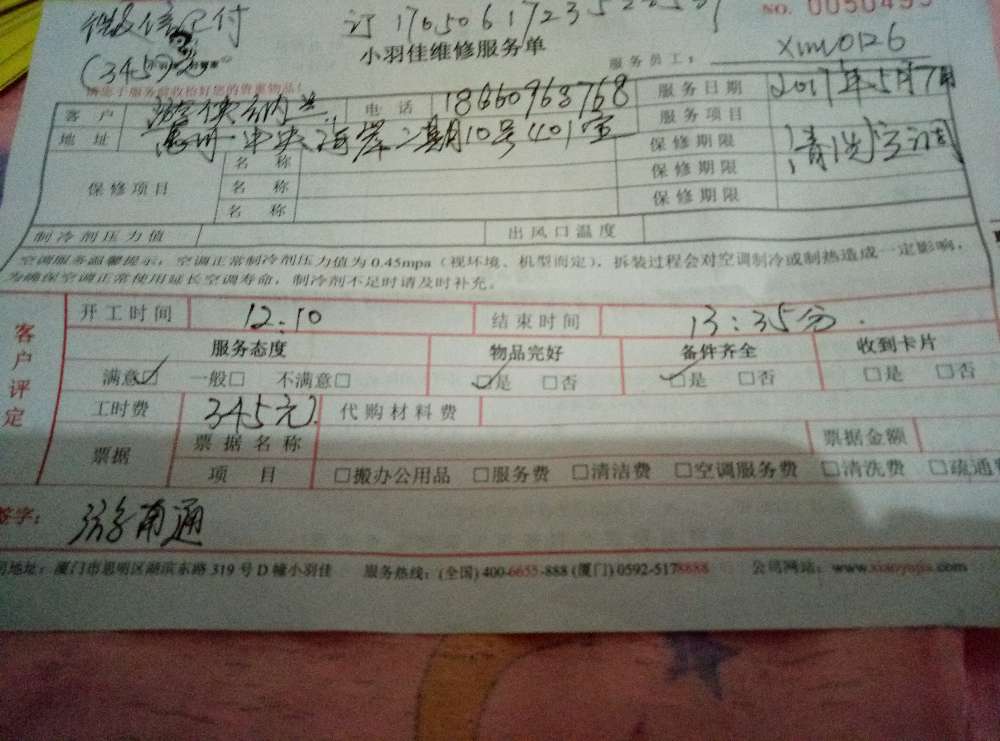 微信已付
(345元)
订
NO. 0050495
小羽佳维修服务单
服务员工: xmw0126
请您于服务前收拾好您的贵重物品!
客 户 电 话 18660963768 服务日期 2017年5月7日
地 址 中央海岸二期10号401室 服务项目 清洗空调
保修项目 名 称 保修期限
名 称 保修期限
名 称 保修期限
制冷剂压力值 出风口温度
空调服务温馨提示: 空调正常制冷剂压力值为 0.45mpa (视环境、机型而定), 拆装过程会对空调制冷或制热造成一定影响,
为确保空调正常使用延长空调寿命, 制冷剂不足时请及时补充。
客户评定
开工时间 12:10 结束时间 13:35分.
服务态度 物品完好 备件齐全 收到卡片
满意☑ 一般□ 不满意□ ☑是 □否 ☑是 □否 □是 □否
工时费 345元 代购材料费
票据 票据名称 票据金额
项 目 □搬办公用品 □服务费 □清洁费 □空调服务费 □清洗费 □疏通
签字: 游南通
司地址: 厦门市思明区湖滨东路 319 号 D 幢小羽佳 服务热线: (全国) 400-6655-888 (厦门) 0592-5178888 公司网站: www.xiaoyujia.com